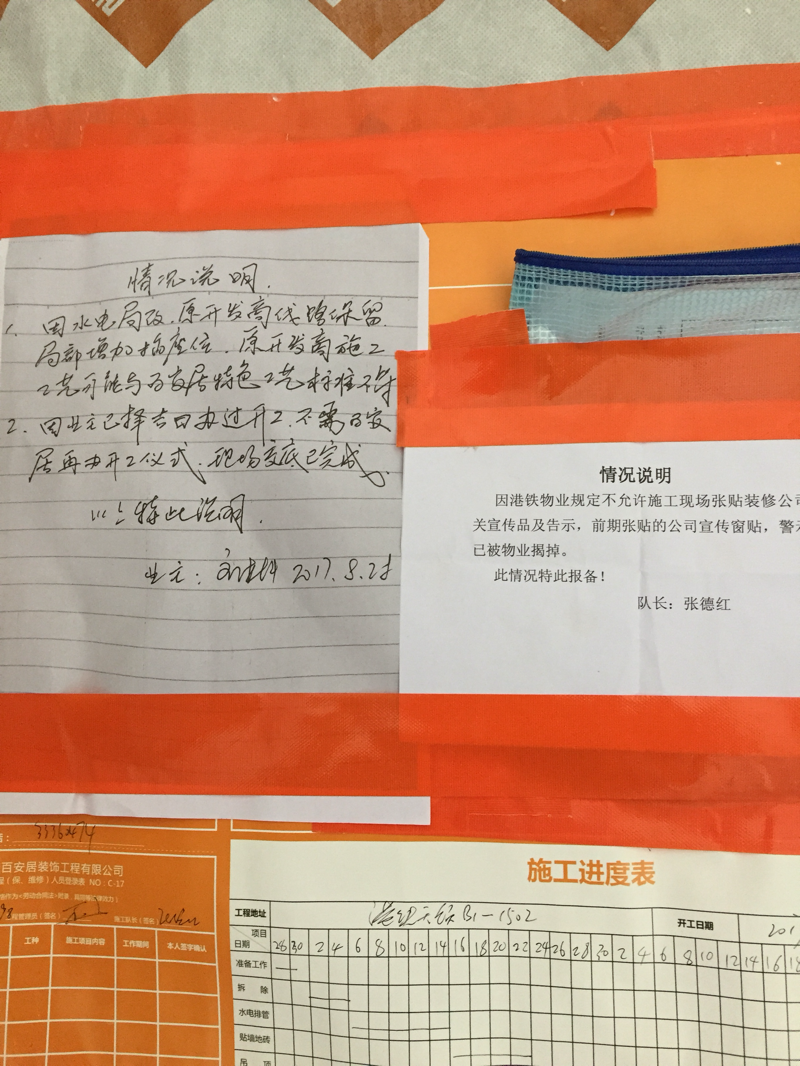 情况说明.
1. 因水电局改.原开发商线路保留.
局部增加插座位.原开发商施工
工艺可能与百安居特色工艺标准不符
2. 因业主已择吉日办过开工.不需百安
居再办开工仪式.现场交底已完成.
以上特此说明.
业主: 2017.8.2
情况说明
因港铁物业规定不允许施工现场张贴装修公司
关宣传品及告示，前期张贴的公司宣传窗贴，警
已被物业揭掉。
此情况特此报备！
队长：张德红
百安居装饰工程有限公司
(保、维修) 人员登录表 NO：C-17
管理员(签名) 施工队长(签名)
工种 施工项目内容 工作期间 本人签字确认
施工进度表
工程地址 B1-1502 开工日期 201
项目
日期 28 30 2 4 6 8 10 12 14 16 18 20 22 24 26 28 30 2 4 6 8 10 12 14 16 18
准备工作
拆 除
水电排管
贴墙地砖
吊 顶